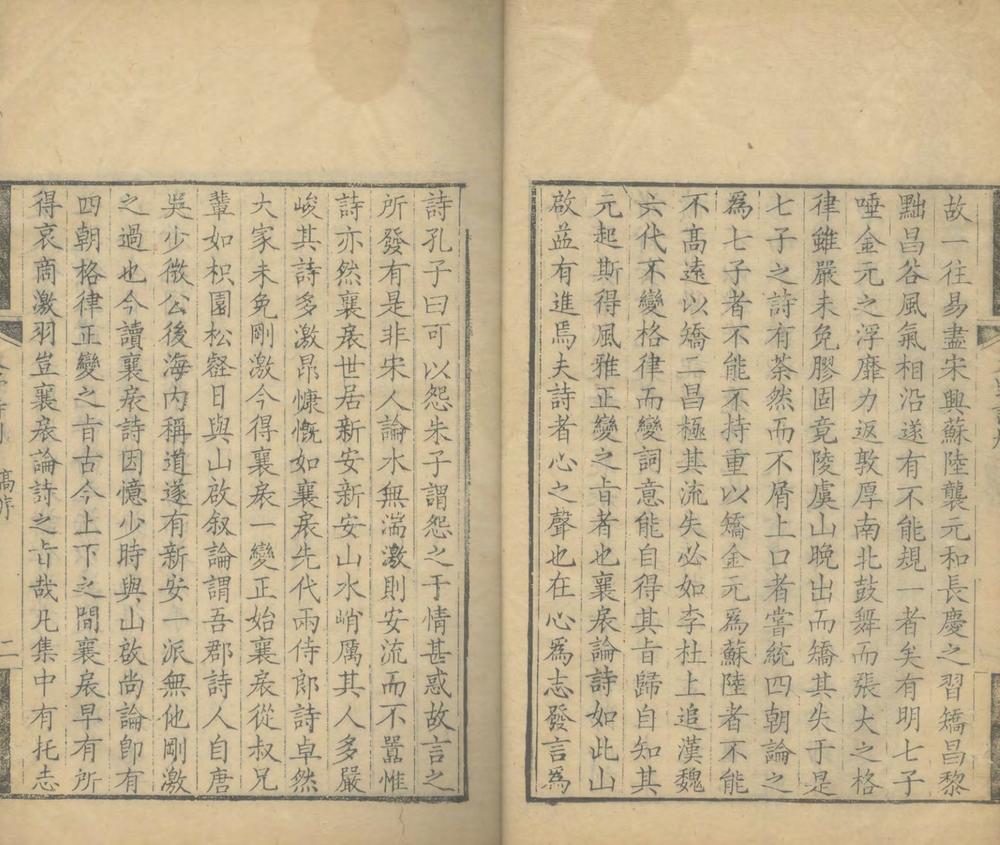 故一往易盡宋興蘇陸襲元和長慶之習矯昌黎
黜昌谷風氣相沿遂有不能規一者矣有明七子
唾金元之浮靡力返敦厚南北鼓舞而張大之格
律雖嚴未免膠固竟陵虞山晚出而矯其失于是
七子之詩有茶然而不屑上口者嘗統四朝論之
為七子者不能不持重以矯金元為蘇陸者不能
不高遠以矯二昌極其流失必如李杜上追漢魏
六代不變格律而變詞意能自得其旨歸自知其
元起斯得風雅正變之旨者也襄扆論詩如此山
啟益有進焉夫詩者心之聲也在心為志發言為
詩孔子曰可以怨朱子謂怨之于情甚惑故言之
所發有是非宋人論水無湍激則安流而不嚚惟
詩亦然襄扆世居新安新安山水峭厲其人多嚴
峻其詩多激昂慷慨如襄扆先代兩侍郎詩卓然
大家未免剛激今得襄扆一變正始襄扆從叔兄
輩如枳園松谿日與山啟叙論謂吾郡詩人自唐
吳少微公後海內稱道遂有新安一派無他剛激
之過也今讀襄扆詩因憶少時與山啟尚論卽有
四朝格律正變之旨古今上下之間襄扆早有所
得哀商激羽豈襄扆論詩之旨哉凡集中有托志
二